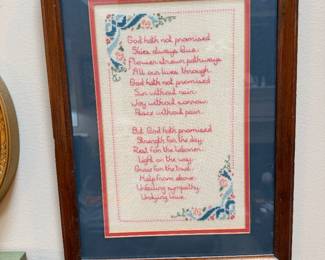 God hath not promised
Skies always blue,
Flower strewn pathways
All our lives through.
God hath not promised
Sun without rain,
Joy without sorrow,
Peace without pain.
But God hath promised
Strength for the day,
Rest for the laborer,
Light on the way.
Grace for the trial,
Help from above,
Unfailing sympathy,
Undying love.